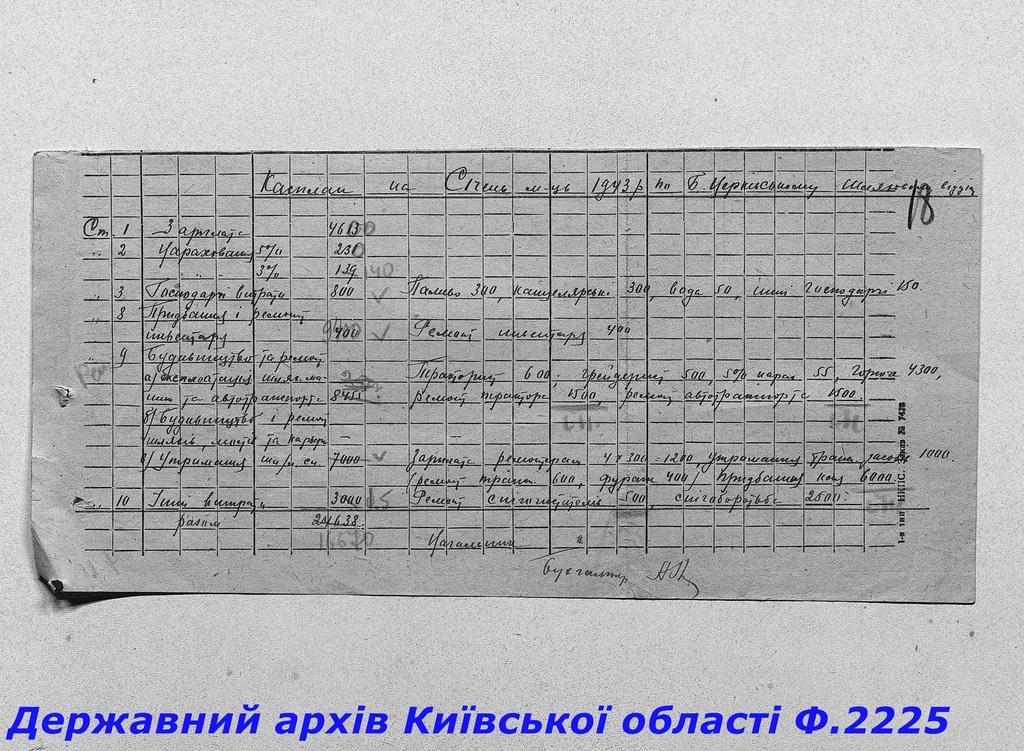 Касплан на Січень м-ць 1943 р по Б. Церківському Шляховому відділ
18
Ст. 1 Зарплата 4613
" 2 Нарахования 5% 231
" " 3% 139 140
" 3 Господарчі витрати 800 Паливо 300, канцелярські 300, вода 50, інші господарчі 150.
" 8 Придбання і ремонт
інвентару 400 Ремонт инвентару 400
" 9 Будівництво та ремонт
а) експлоатація шлях. ма- Тракторист 600, грейдерист 500, 5% нарах 55, горюче 4300,
шин та автотранспорта 8455 Ремонт трактора 1500, ремонт автотранспорта 1500.
б) Будівництво і ремонт
шляхів, мостів та кар'єрів —
в) Утримання 7000 Зарплата ремонтерам 4×300=1200, утримання транс. засобів 1000.
(ремонт 600, фураж 400) придбання коня 6000.
" 10 Інші витрати 3000 Ремонт снігоочистителів 500, снігоборотьба 2500.
разом 24638.
16670
Начальник
Бухгалтер
1-я тип. НКПС. Заказ № 7418
Державний архів Київської області Ф.2225